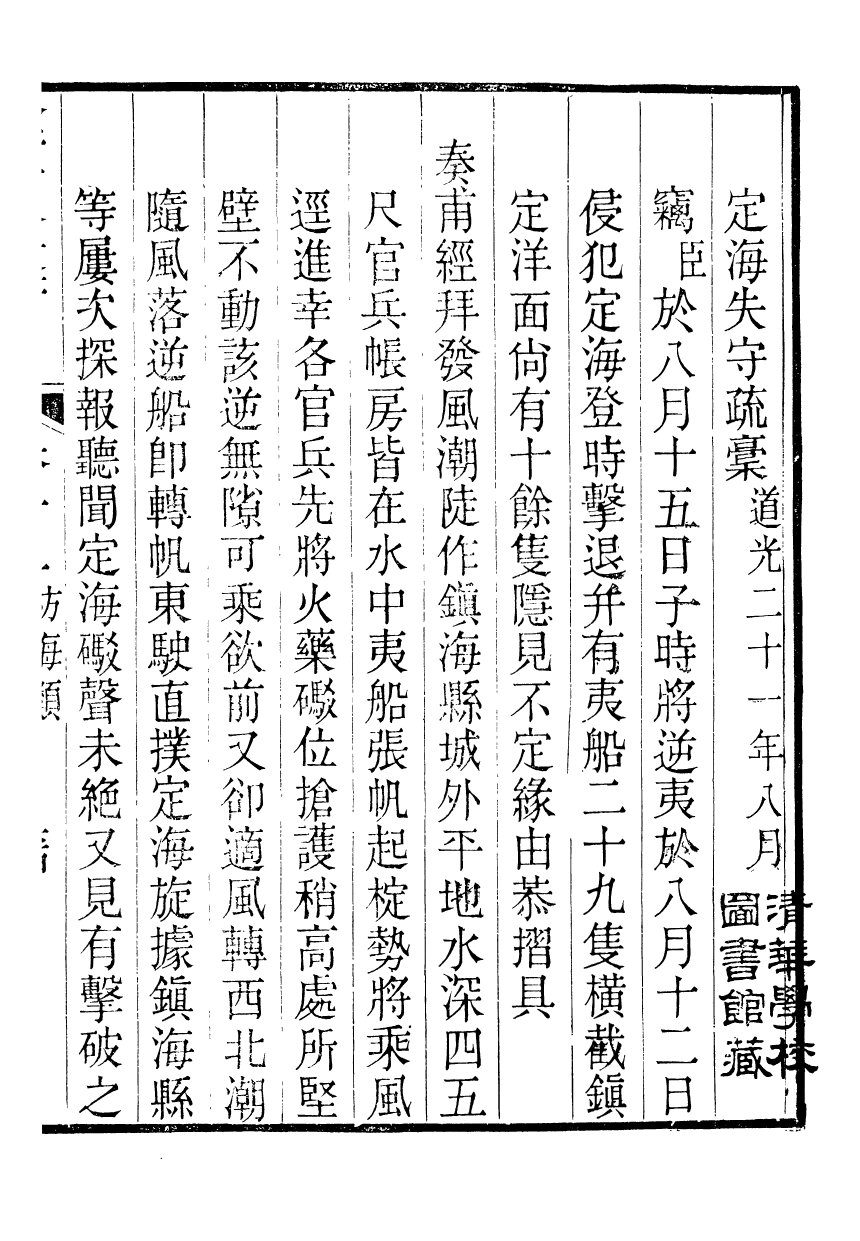 定海失守疏稾 道光二十一年八月
竊臣於八月十五日子時將逆夷於八月十二日
侵犯定海登時擊退并有夷船二十九隻橫截鎭
定洋面尙有十餘隻隱見不定緣由恭摺具
奏甫經拜發風潮陡作鎭海縣城外平地水深四五
尺官兵帳房皆在水中夷船張帆起椗勢將乘風
逕進幸各官兵先將火藥礮位搶護稍高處所堅
壁不動該逆無隙可乘欲前又卻適風轉西北潮
隨風落逆船卽轉帆東駛直撲定海旋據鎭海縣
等屢次探報聽聞定海礮聲未絕又見有擊破之
防海類
清華學校
圖書館藏